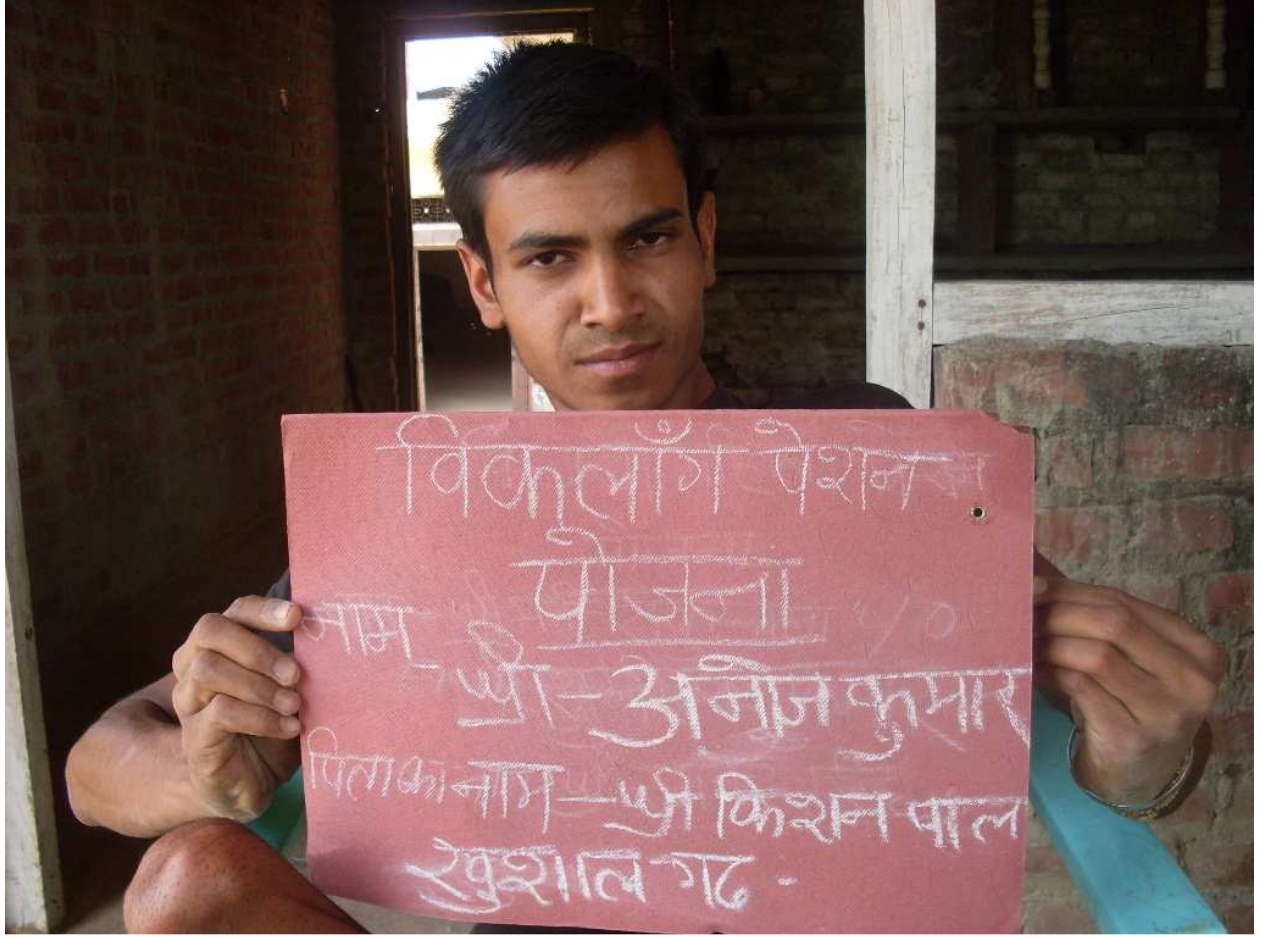 विकलाँग पेंशन
योजना
नाम
श्री - अनोज कुमार
पिता का नाम - श्री किशन पाल
खुशाल गढ -